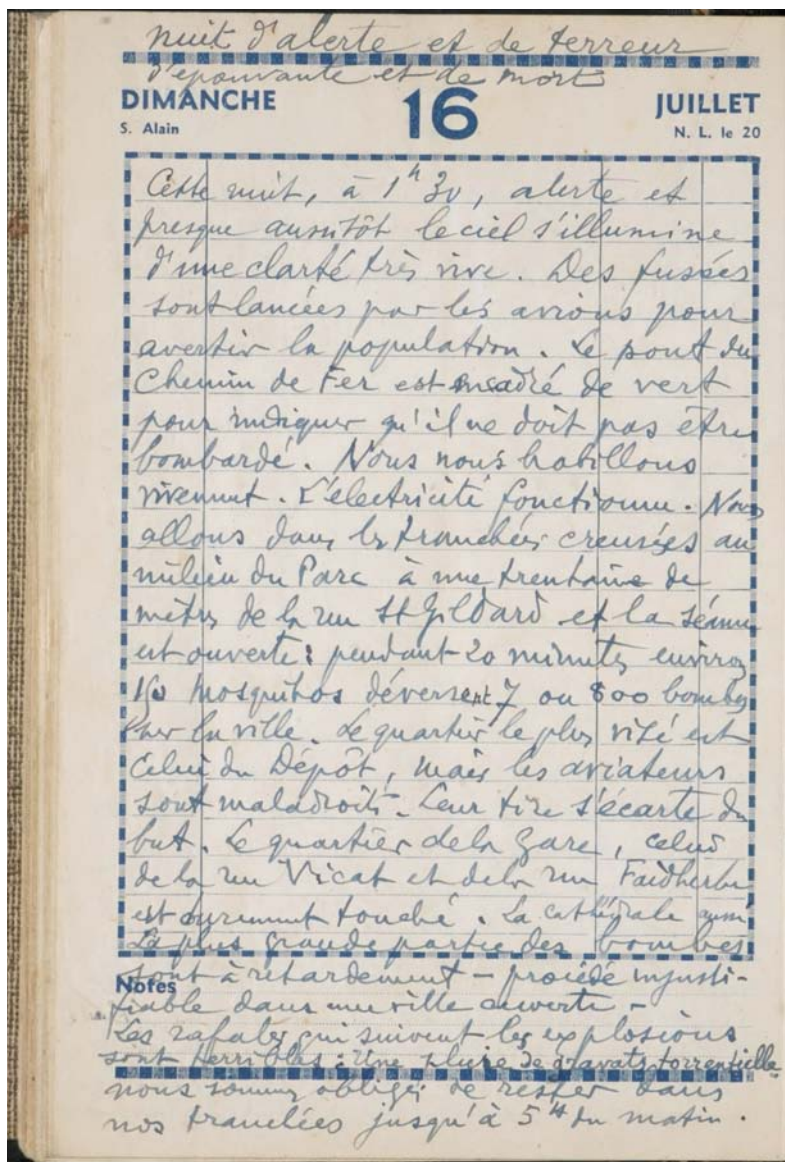 nuit d'alerte et de terreur
d'épouvante et de mort
DIMANCHE 16 JUILLET
S. Alain N. L. le 20
Cette nuit, à 1h 30, alerte et
presque aussitôt le ciel s'illumine
d'une clarté très vive. Des fusées
sont lancées par les avions pour
avertir la population. Le pont du
Chemin de Fer est encadré de vert
pour indiquer qu'il ne doit pas être
bombardé. Nous nous habillons
vivement. L'électricité fonctionne. Nous
allons dans les tranchées creusées au
milieu du Parc à une trentaine de
mètres de la rue St Gildard et la séance
est ouverte : pendant 20 minutes environ
150 Mosquitos déversent 7 ou 800 bombes
sur la ville. Le quartier le plus visé est
celui du Dépôt, mais les aviateurs
sont maladroits. Leur tire s'écarte du
but. Le quartier de la Gare, celui
de la rue Vicat et de la rue Faidherbe
est durement touché. La cathédrale aussi
La plus grande partie des bombes
sont à retardement - procédé injusti-
Notes
fiable dans une ville ouverte -
Les rafales qui suivent les explosions
sont terribles : Une pluie de gravats torrentielle
nous sommes obligés de rester dans
nos tranchées jusqu'à 5h du matin.